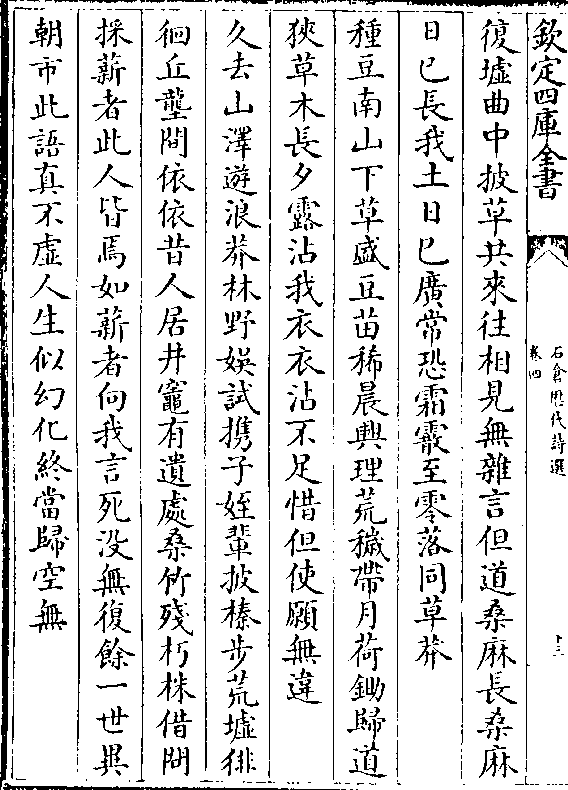 欽定四庫全書
石倉歷代詩選
卷四
十三
復墟曲中披草共來往相見無雜言但道桑麻長桑麻
日已長我土日已廣常恐霜霰至零落同草莽
種豆南山下草盛豆苗稀晨興理荒穢帶月荷鋤歸道
狹草木長夕露沾我衣衣沾不足惜但使願無違
久去山澤遊浪莽林野娛試携子姪輩披榛步荒墟徘
徊丘壟間依依昔人居井竈有遺處桑竹殘朽株借問
採薪者此人皆焉如薪者向我言死没無復餘一世異
朝市此語真不虛人生似幻化終當歸空無